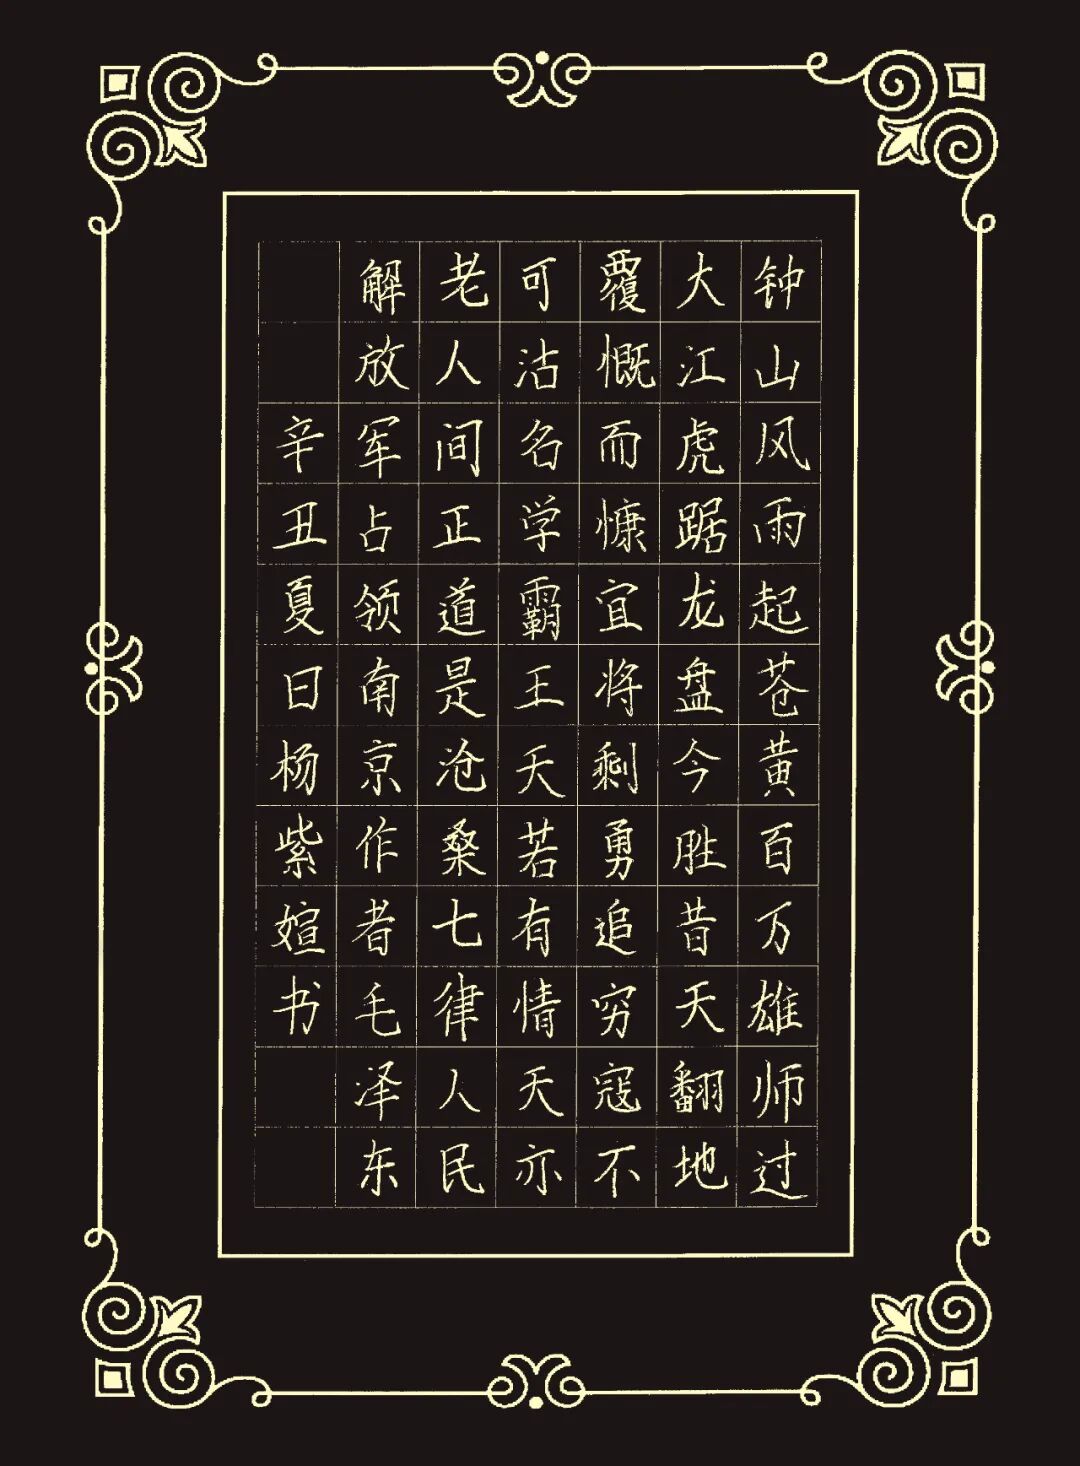 钟山风雨起苍黄百万雄师过
大江虎踞龙盘今胜昔天翻地
覆慨而慷宜将剩勇追穷寇不
可沽名学霸王天若有情天亦
老人间正道是沧桑七律人民
解放军占领南京作者毛泽东
辛丑夏日杨紫媗书